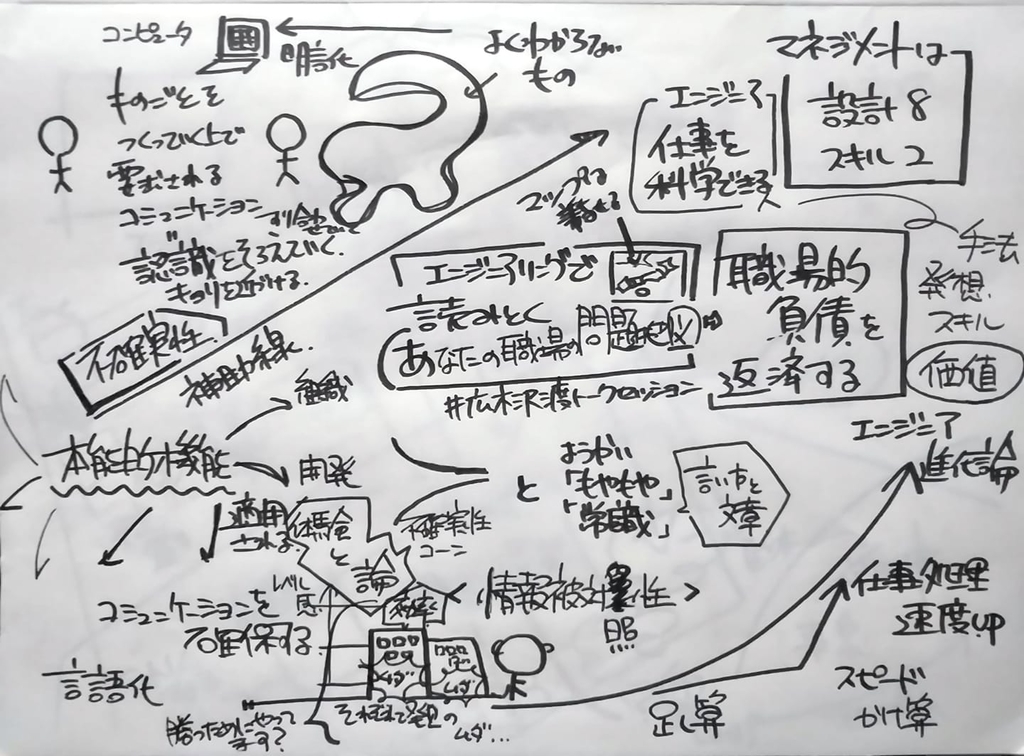 コンピュータ
明言化
よくわからない
もの
マネジメントは
設計8
スキル2
エンジニア
仕事を
科学できる
ものごとを
つくっていく上で
要求される
コミュニケーション
すり合わせていく
認識をそろえていく
キョリを近づける
不確実性
神経線
手法
発想
スキル
価値
エンジニアリングで
読みとく
あなたの職場の問題地図
#広木沢渡トークセッション
職場的
負債を
返済する
本能的機能
組織
開発
適用
される
体験
と
論
不確実性
コーン
と
ようかい
「もやもや」
「常識」
言い方と
文章
エンジニア
進化論
仕事処理
速度up
スピード
かけ算
足し算
レベル
感
効率
情報被対
照
性
コミュニケーションを
確保する
言語化
勝つためにやって
ます?
それぞれで発見の
ムダ…
ムダ
ムダ